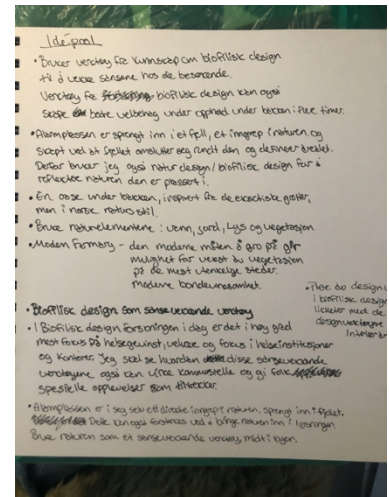 Idépool
• Bruker verktøy fra kunnskap om biofilisk design
til å vekke sansene hos de besøkende.
Verktøy fra biofilisk design kan også
skape bedre velbehag under opphold under bakken i flere timer.
• Alarmplassen er sprengt inn i et fjell, et inngrep i naturen, og
skapt ved at fjellet omslutter seg rundt den og definerer arealet.
Derfor bruker jeg også natur design/biofilisk design for å
reflektere naturen den er plassert i.
• En oase under bakken, inspirert fra de eksotiske grotter,
men i norsk natur stil.
• Bruke naturelementene : vann, jord, Lys og vegetasjon
• Modern Farming – den moderne måten å gro på gir
mulighet for vekst av vegetasjon
på de mest utenkelige steder.
moderne bondevirksomhet.
• Flere av design
i biofilisk design
likheter med de
designverktøyene
Interiør
• Biofilisk design som sansevekkende verktøy
• I Biofilisk design forskningen i dag er det i høy grad
mest fokus på helsegevinst, velvære og fokus i helseinstitusjoner
og kontorer. Jeg skal se hvordan disse sansevekkende
verktøyene også kan virke og gi folk
spesielle opplevelser som tiltrekker.
• Alarmplassen er i seg selv ett direkte inngrep i naturen, sprengt inn i fjellet.
Dette kan også forsterkes ved å bringe naturen inn i løsningen
Bruke naturen som et sansevekkende verktøy midt i byen.